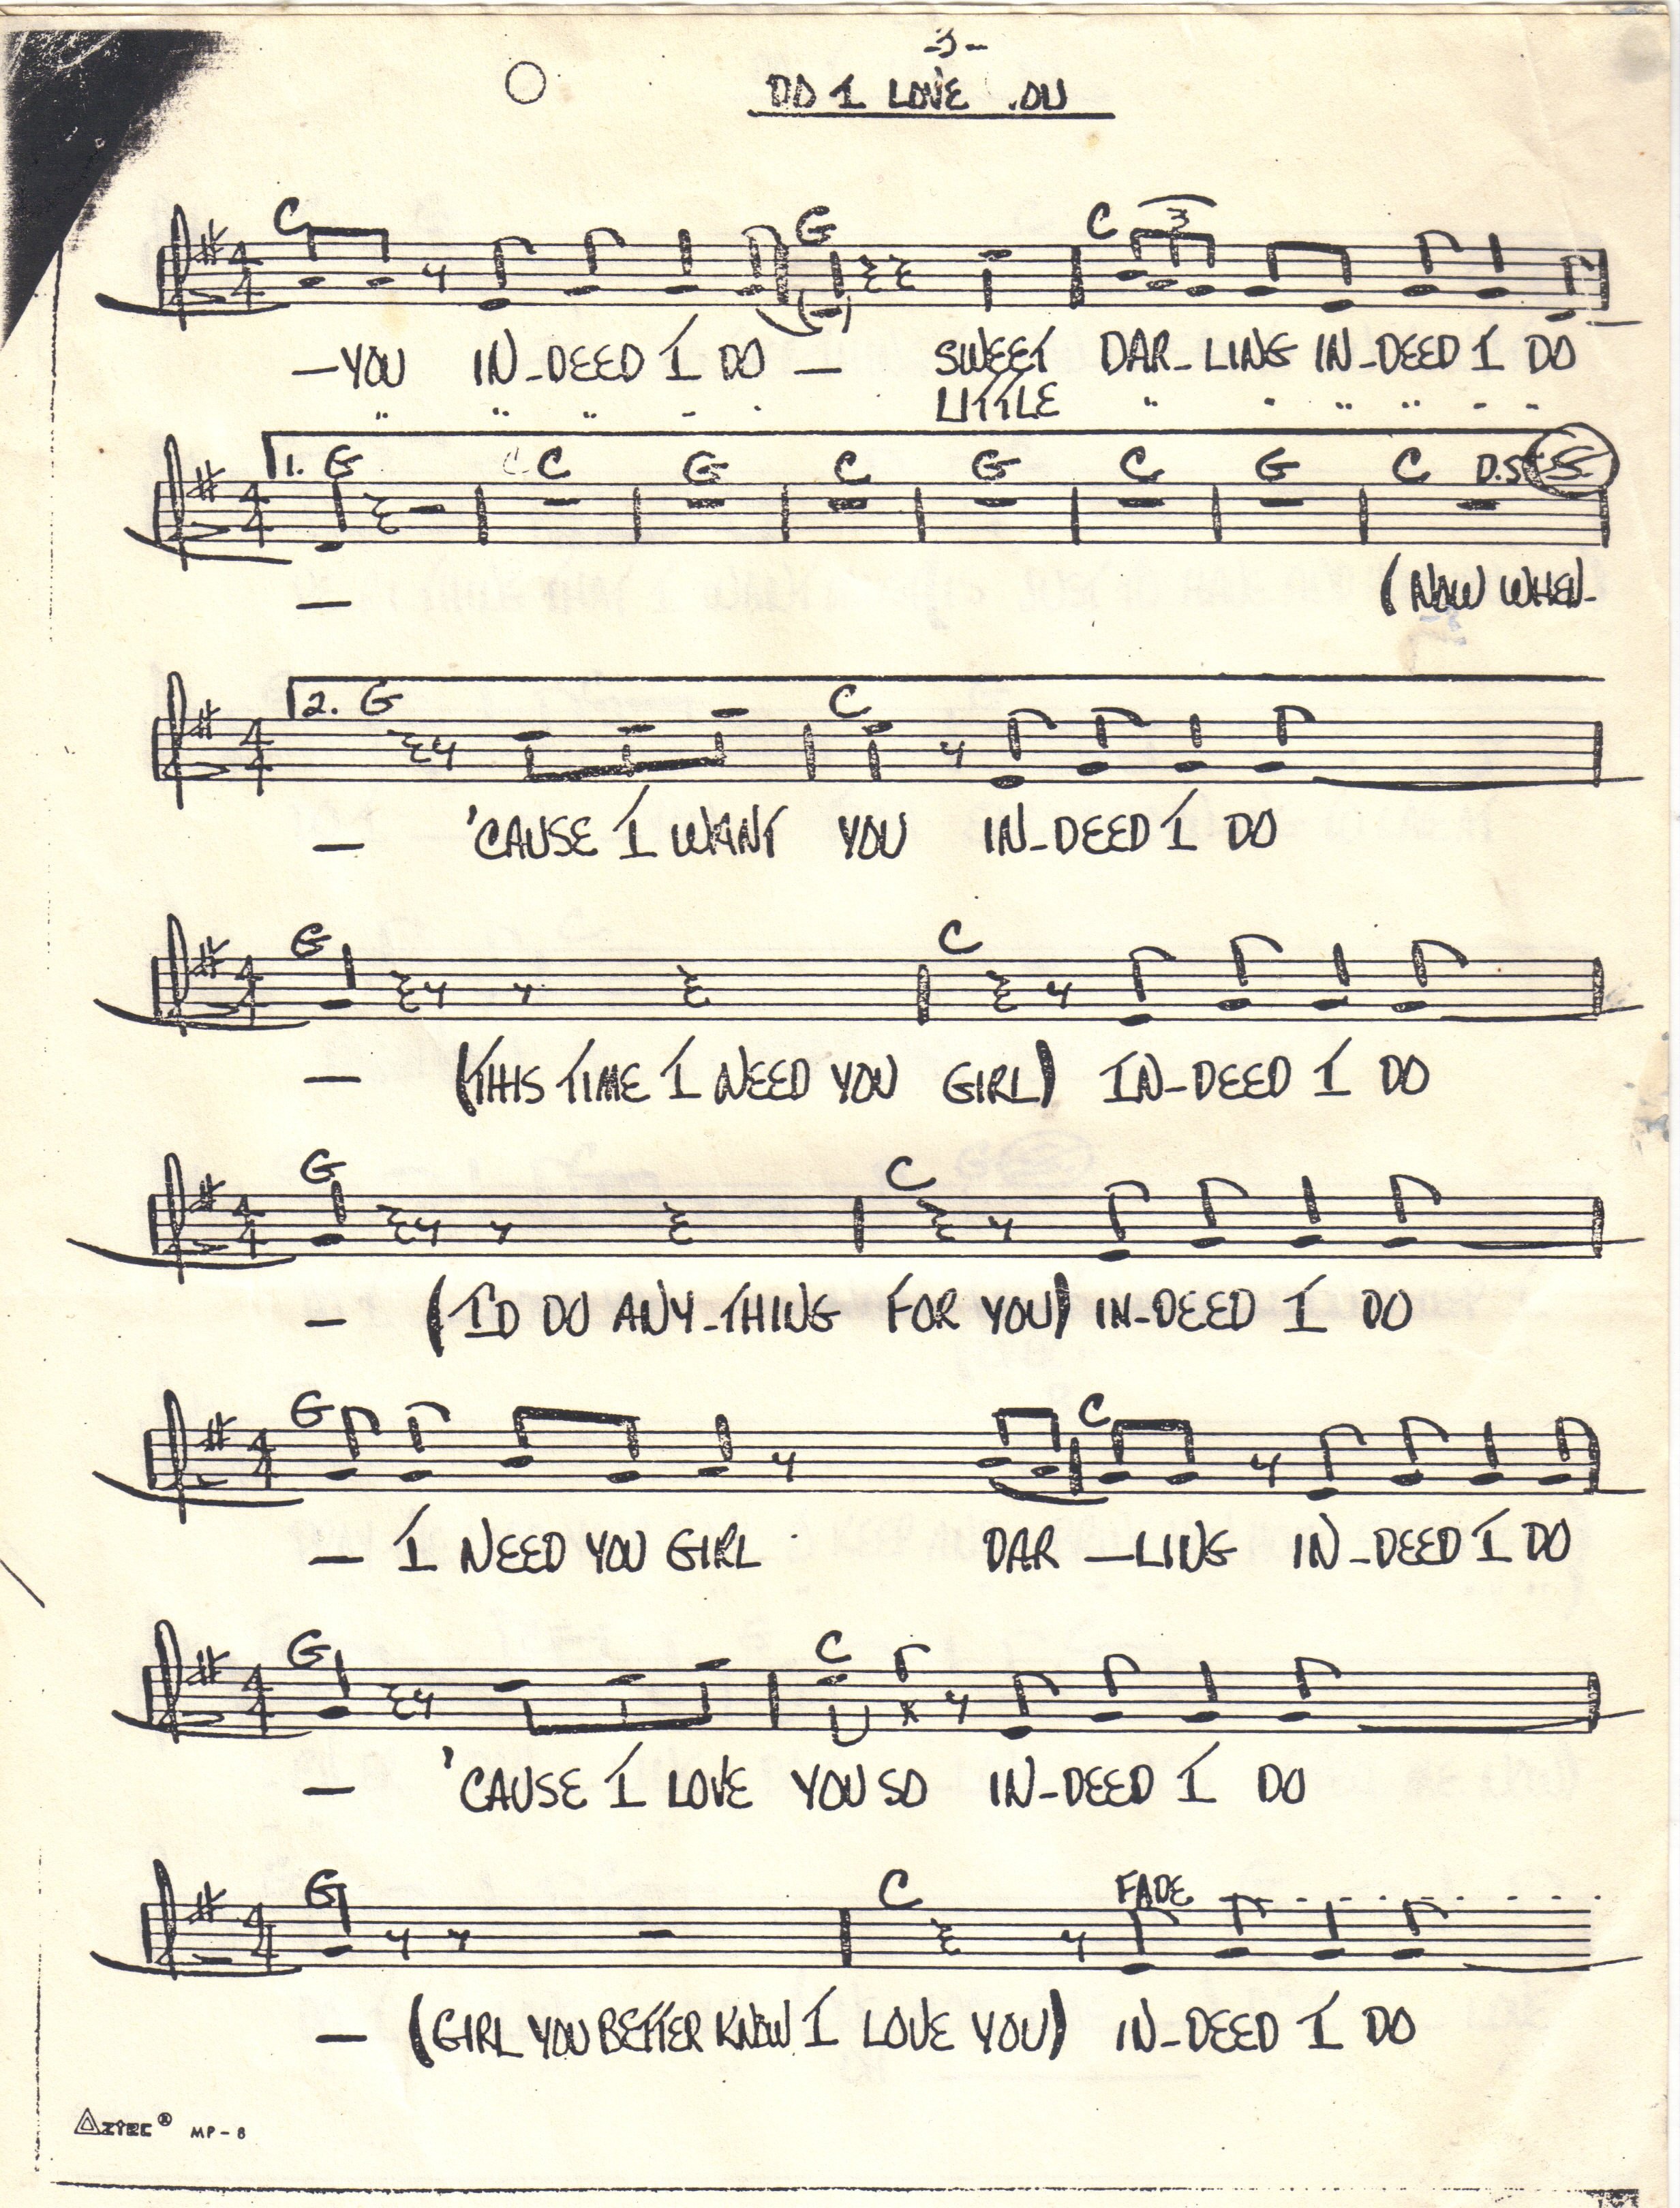 -3-
DO I LOVE .OU
C G C 3
—YOU IN-DEED I DO — SWEET DAR-LING IN-DEED I DO
" " " " " LITTLE " " " " " "
1. G C C G C G C G C D.S. S
— (NOW WHEN-
2. G C
— 'CAUSE I WANT YOU IN-DEED I DO
G C
— (THIS TIME I NEED YOU GIRL) IN-DEED I DO
G C
— (I'D DO ANY-THING FOR YOU) IN-DEED I DO
G C
— I NEED YOU GIRL DAR —LING IN-DEED I DO
G C
— 'CAUSE I LOVE YOU SO IN-DEED I DO
G C FADE
— (GIRL YOU BETTER KNOW I LOVE YOU) IN-DEED I DO
AZTEC® MP-8